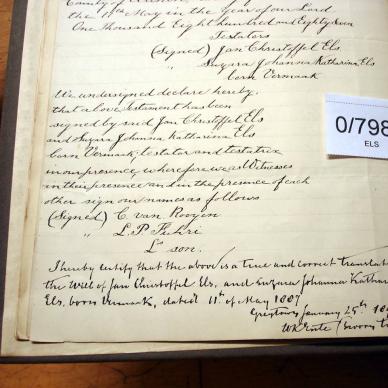 County of
the 11th May in the Year of our Lord
One thousand Eight hundred and Eighty seven
Testators
(Signed) Jan Christoffel Els
" Suzara Johanna Katharina Els
born Vermaak
We undersigned declare hereby,
that above testament has been
signed by said Jan Christoffel Els
and Suzara Johanna Katharina Els
born Vermaak, testator and testatrix
in our presence, wherefore we as Witnesses
in their presence and in the presence of each
other sign our names as follows
(Signed) C. van Rooyen
" L. P. Fehri
L. son.
I hereby certify that the above is a true and correct translat
the Will of Jan Christoffel Els, and Suzara Johanna Kathar
Els, born Vermaak, dated 11th of May 1887
Greytown January 25th
(Sworn
0/798
ELS